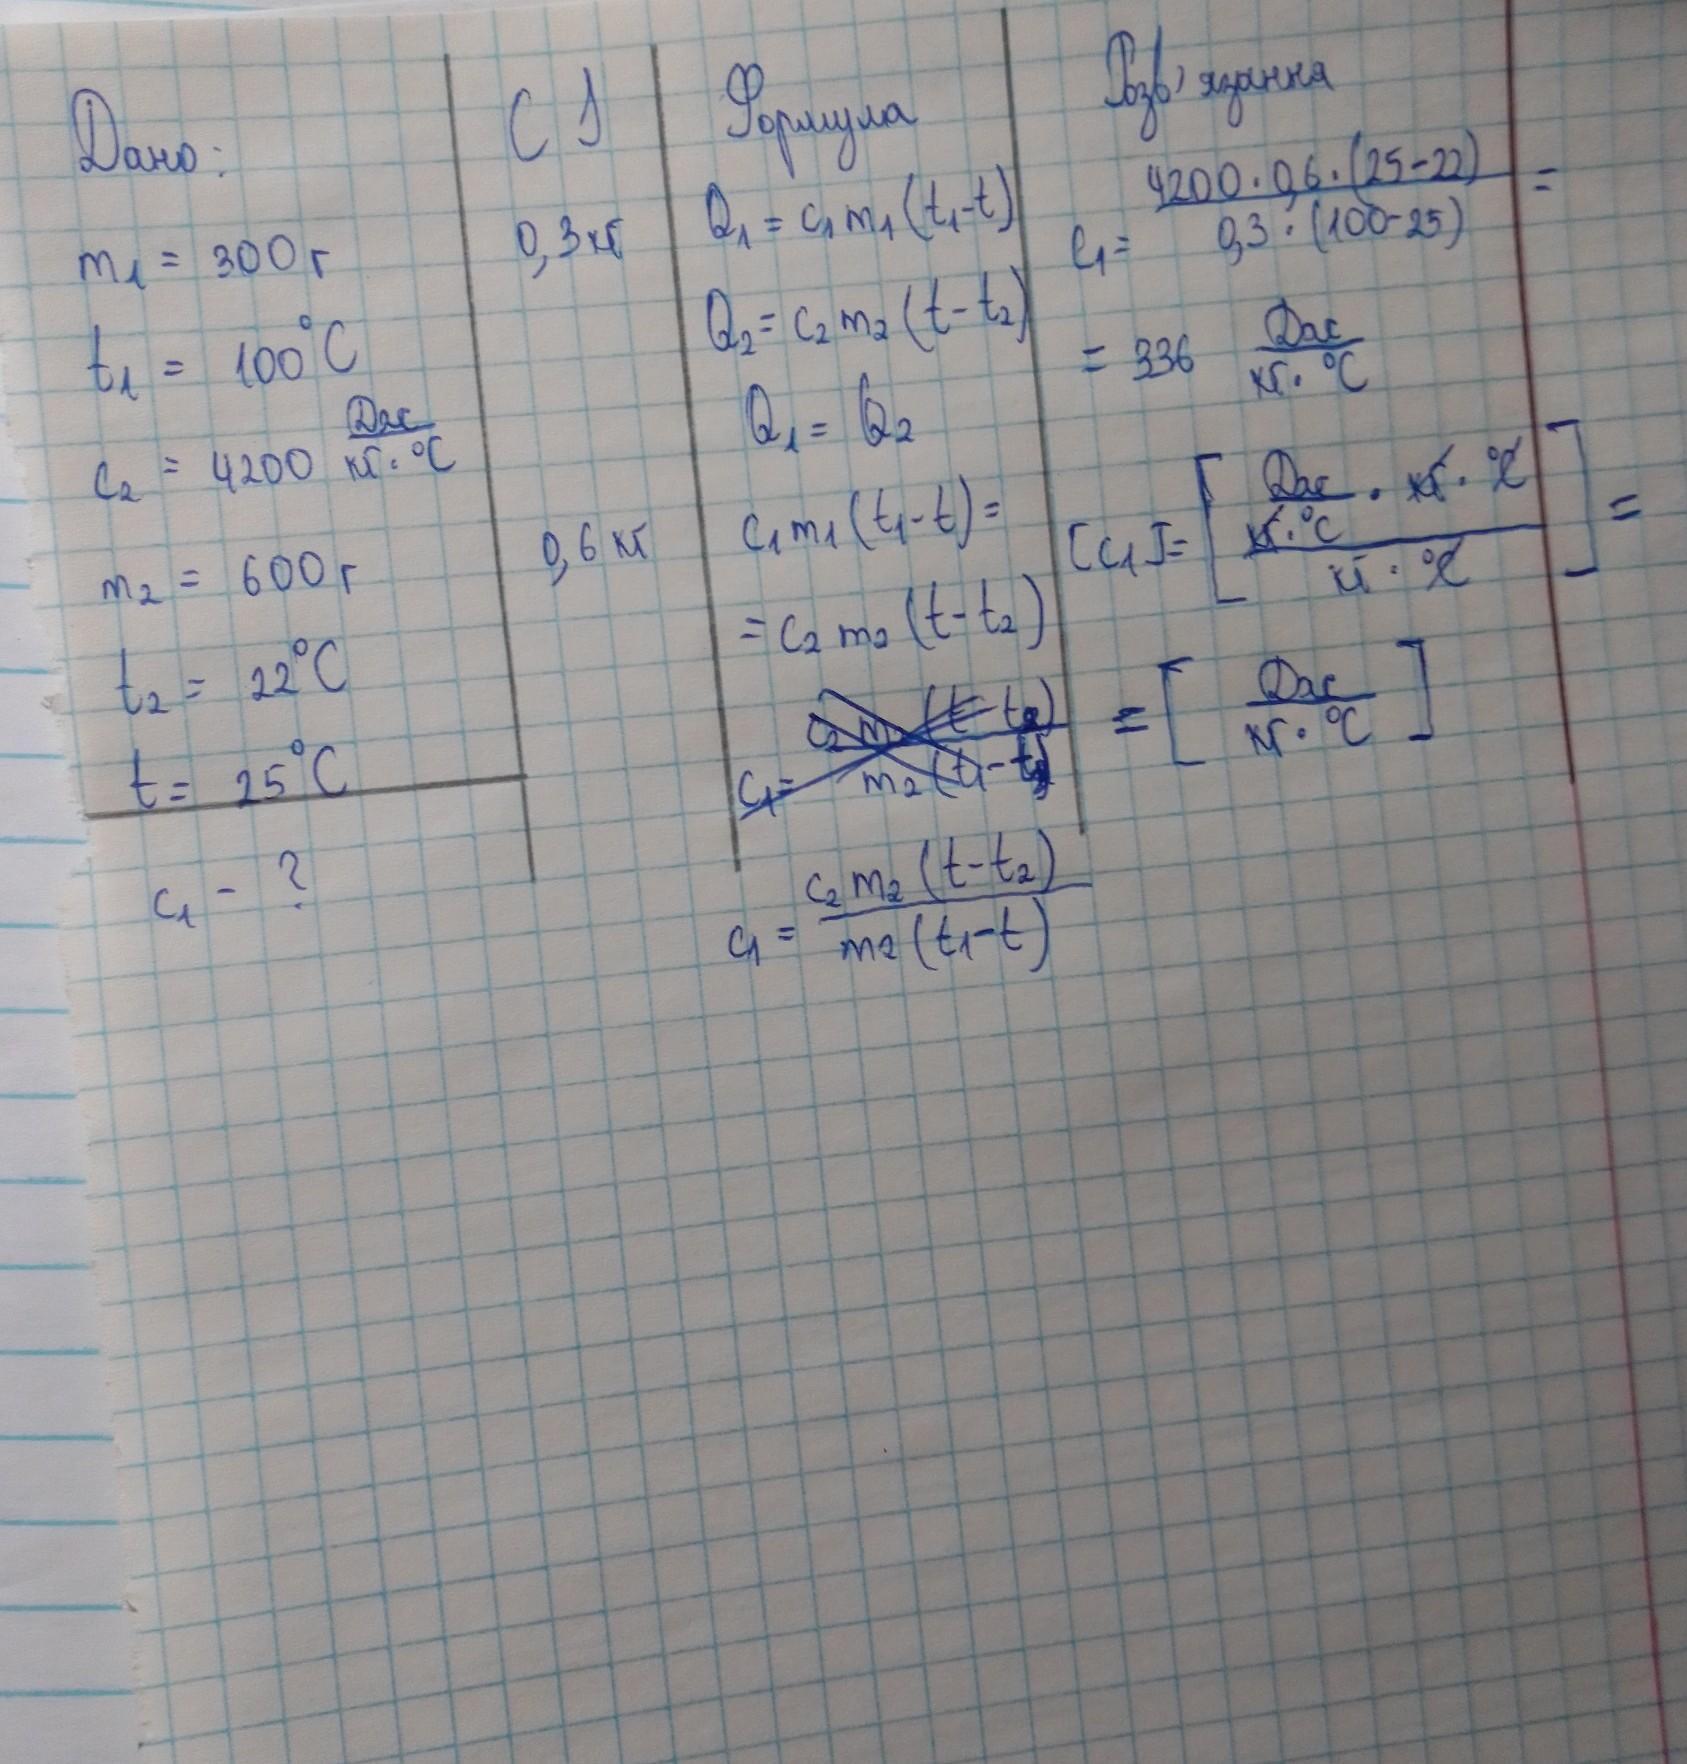 Дано:
m₁ = 300 г
t₁ = 100°C
c₂ = 4200 Дж/кг·°C
m₂ = 600 г
t₂ = 22°C
t = 25°C
c₁ - ?
СІ
0,3 кг
0,6 кг
Формула
Q₁ = c₁ m₁ (t₁-t)
Q₂ = c₂ m₂ (t-t₂)
Q₁ = Q₂
c₁ m₁ (t₁-t) =
= c₂ m₂ (t-t₂)
c₁ = c₂ m₂ (t-t₂) / m₂ (t₁-t)
Розв'язання
c₁ = 4200·0,6·(25-22) / 0,3·(100-25) =
= 336 Дж/кг·°C
[c₁] = [Дж/кг·°C · кг·°C / кг·°C] =
= [Дж/кг·°C]